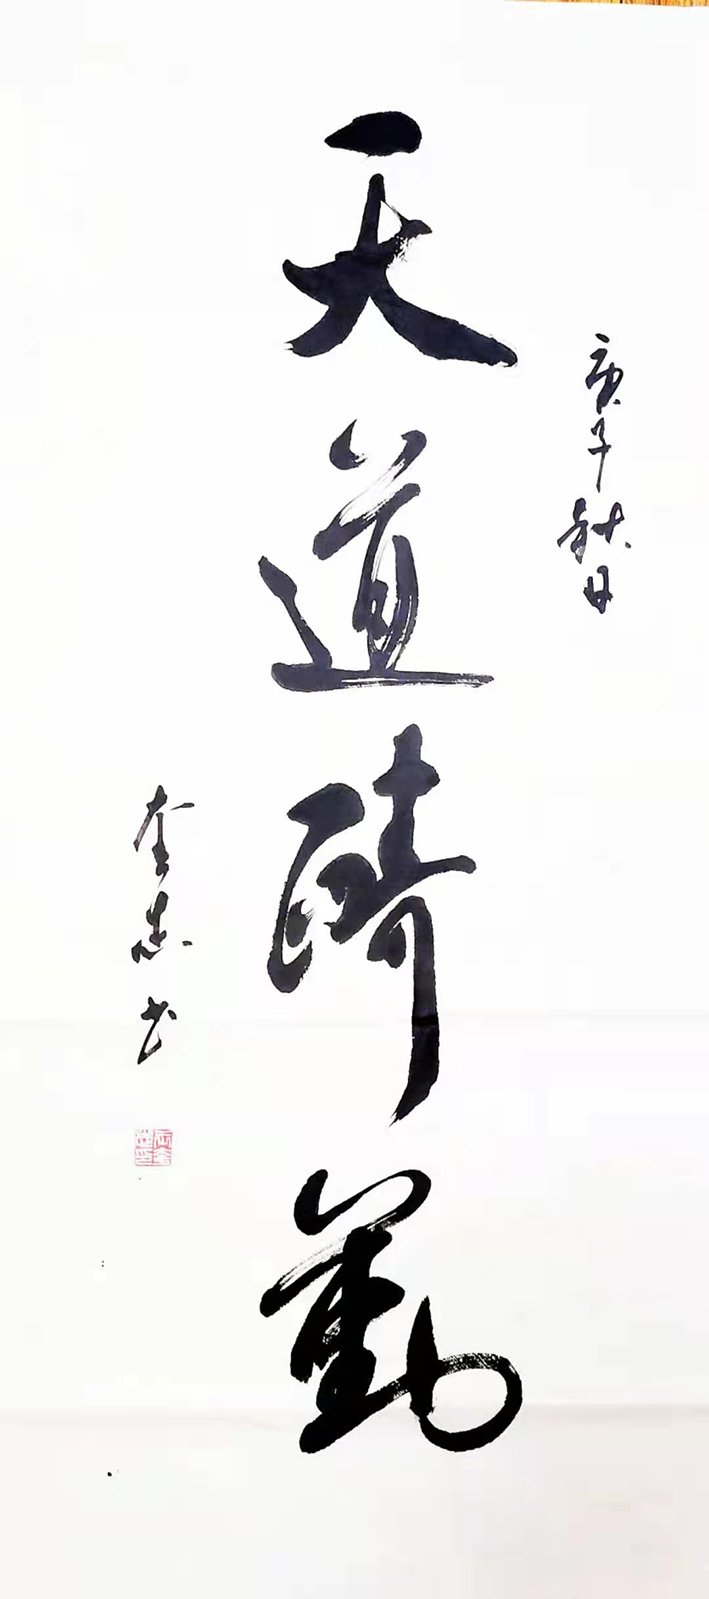 庚子秋日
天道酬勤
奎志书